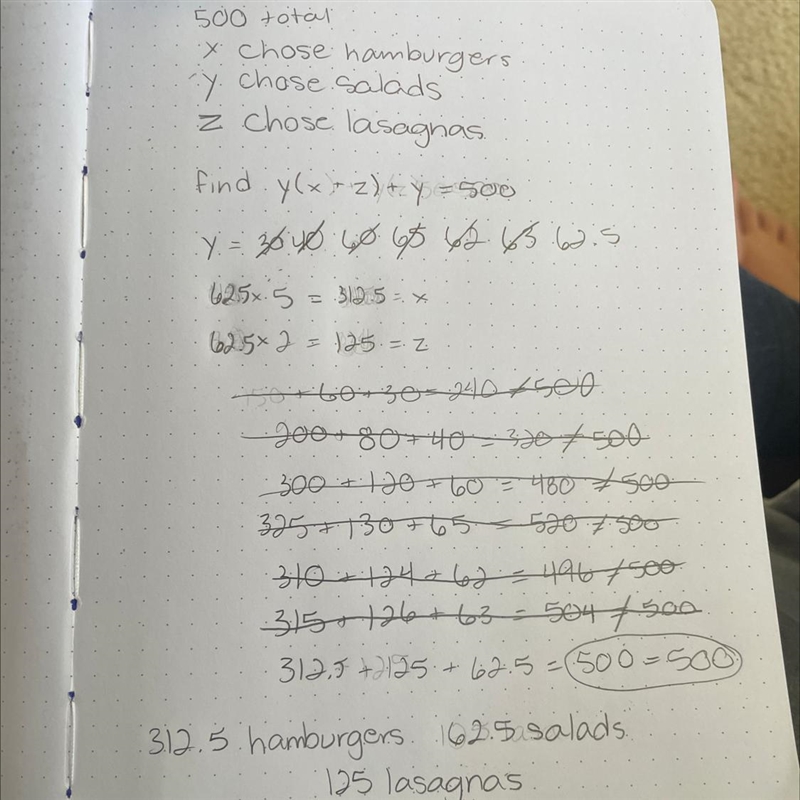 500 total
x chose hamburgers
y chose salads
z chose lasagnas
find y(x + z) + y = 500
y = 30 40 60 65 62 63 62.5
62.5 × 5 = 312.5 = x
62.5 × 2 = 125 = z
150 + 60 + 30 = 240 ≠ 500
200 + 80 + 40 = 320 ≠ 500
300 + 120 + 60 = 480 ≠ 500
325 + 130 + 65 = 520 ≠ 500
310 + 124 + 62 = 496 ≠ 500
315 + 126 + 63 = 504 ≠ 500
312.5 + 125 + 62.5 = 500 = 500
312.5 hamburgers 62.5 salads
125 lasagnas